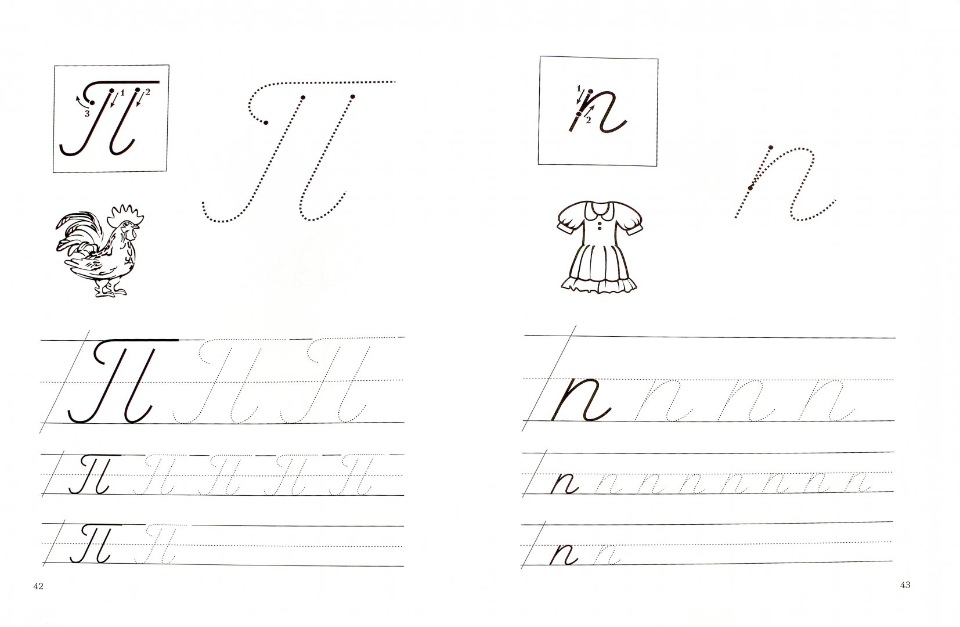 П
1 2
3
П
П П П
П П П П П
П П
42
п
1
2
п
п п п п
п п п п п п п п
п п
43